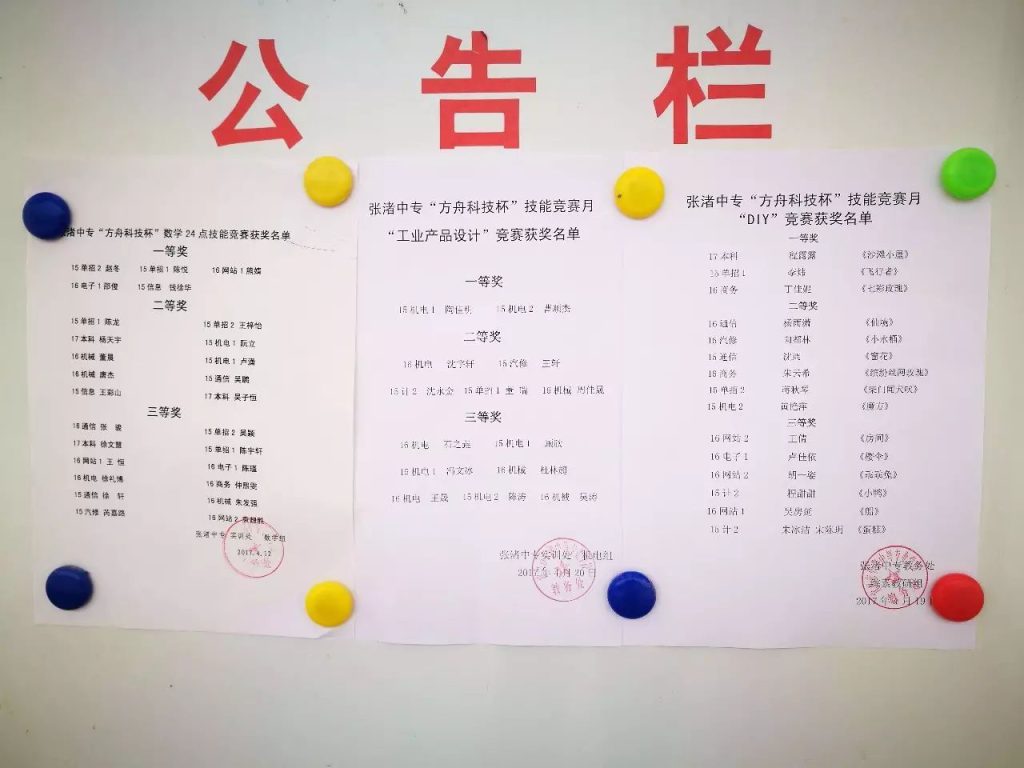 公告栏
张渚中专“方舟科技杯”数学24点技能竞赛获奖名单
一等奖
15单招2 赵冬 15单招1 陈悦 16网站1 熊嫘
16电子1 邵俊 15信息 钱徐华
二等奖
15单招1 陈龙 15单招2 王梓怡
17本科 杨天宇 15机电1 阮立
16机械 董晨 15机电1 卢潇
16机械 唐杰 15通信 吴鹏
15信息 王彩山 17本科 吴子恒
三等奖
16通信 张 骏 15单招2 吴颖
17本科 徐文慧 15单招1 陈宇轩
16网站1 王 恒 16电子1 陈瑾
16机电 徐礼博 16商务 仲熙雯
15通信 徐 轩 16机械 朱发强
15汽修 芮嘉路 16网站2
张渚中专 实训处 数学组
2017.4.12
张渚中专“方舟科技杯”技能竞赛月
“工业产品设计”竞赛获奖名单
一等奖
15机电1 陶佳帆 15机电2 曹顺杰
二等奖
16机电 沈宇轩 15汽修 王轩
15计2 沈永金 15单招1 董 瑞 16机械 周佳晟
三等奖
16机电 石之垚 15机电1 顾欣
15机电1 冯文冰 16机械 杜林超
16机电 王晟 15机电2 陈涛 16机械 吴涛
张渚中专实训处 机电组
2017年4月20日
张渚中专“方舟科技杯”技能竞赛月
“DIY”竞赛获奖名单
一等奖
17本科 程露露 《沙滩小屋》
15单招1 李炜 《飞行者》
16商务 丁佳妮 《七彩玫瑰》
二等奖
16通信 杨雨潇 《仙境》
15汽修 《小水桶》
15通信 《窗花》
16商务 朱云希 《缤纷丝网玫瑰》
15单招2 蒋秋琴 《柴门闻犬吠》
15机电2 黄艳萍 《魔方》
三等奖
16网站2 王倩 《房间》
16电子1 卢佳依 《楼伞》
16网站2 胡一姿 《乖乖兔》
15计2 程甜甜 《小鸭》
16网站1 吴房妮 《船》
15计2 朱冰洁 宋陈玥 《蛋糕》
张渚中专教务处
2017年4月19日